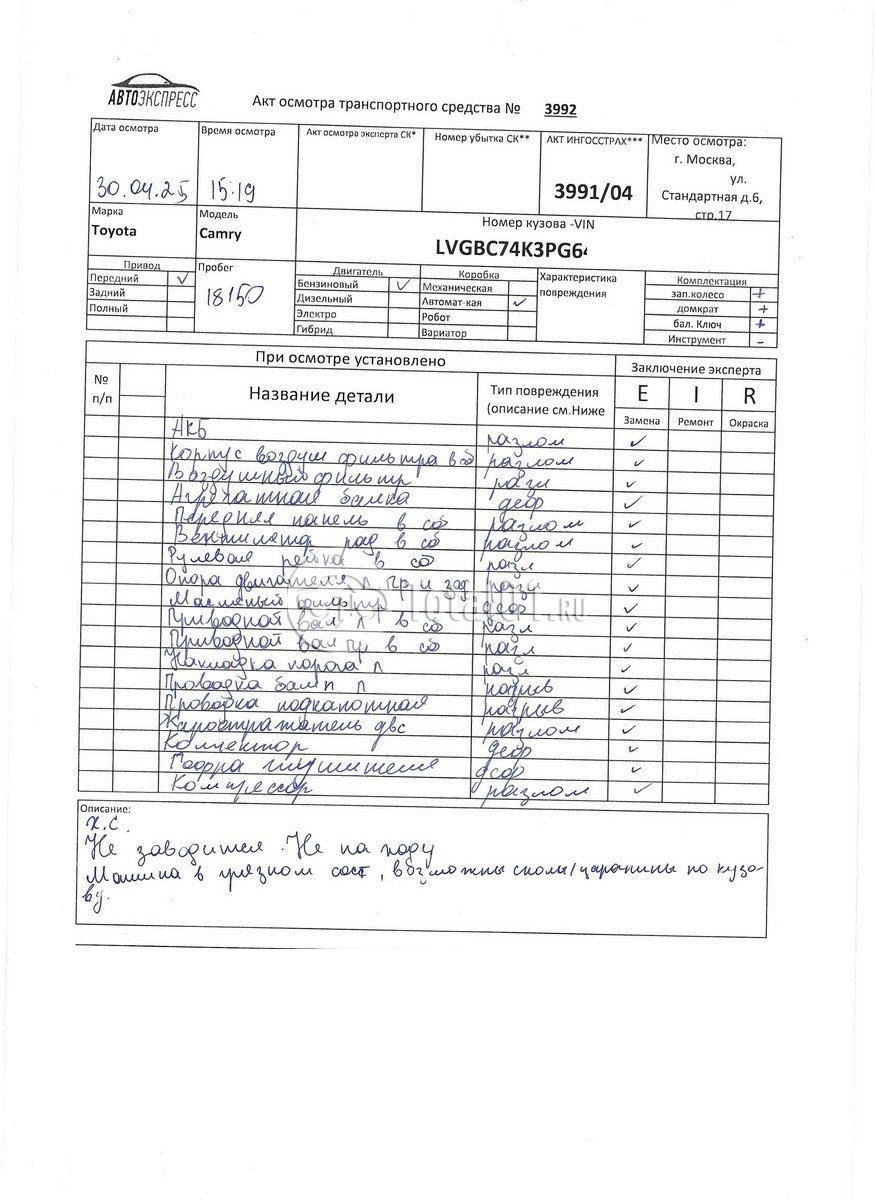 АВТОЭКСПРЕСС
Акт осмотра транспортного средства № 3992
Дата осмотра Время осмотра Акт осмотра эксперта СК* Номер убытка СК** АКТ ИНГОССТРАХ*** Место осмотра:
г. Москва,
ул.
Стандартная д.6,
стр.17
30.04.25 15:19 3991/04
Марка Модель Номер кузова -VIN
Toyota Camry LVGBC74K3PG64
Привод Пробег Двигатель Коробка Характеристика повреждения Комплектация
Передний ✓ 18150 Бензиновый ✓ Механическая зап.колесо +
Задний Дизельный Автомат-кая ✓ домкрат +
Полный Электро Робот бал. Ключ +
Гибрид Вариатор Инструмент -
При осмотре установлено Заключение эксперта
№ п/п Название детали Тип повреждения (описание см.Ниже E I R
Замена Ремонт Окраска
АКБ разлом ✓
Корпус воздуш фильтра в сб разлом ✓
Воздушный фильтр разл ✓
Агрегатная балка деф ✓
Передняя панель в сб разлом ✓
Вентилятор рад в сб разлом ✓
Рулевая рейка в сб разл ✓
Опора двигателя л пр и зад разл ✓
Масляный фильтр деф ✓
Приводной вал л в сб разл ✓
Приводной вал пр в сб разл ✓
Накладка порога л разл ✓
Проводка бамп п надрыв ✓
Проводка подкапотная разрыв ✓
Жароотражатель двс разлом ✓
Коллектор деф ✓
Гофра глушителя деф ✓
Компрессор разлом ✓
TotalN1.RU
Описание:
Х.С.
Не заводится. Не на ходу
Машина в грязном сост, возможны сколы/царапины по кузо-
ву.